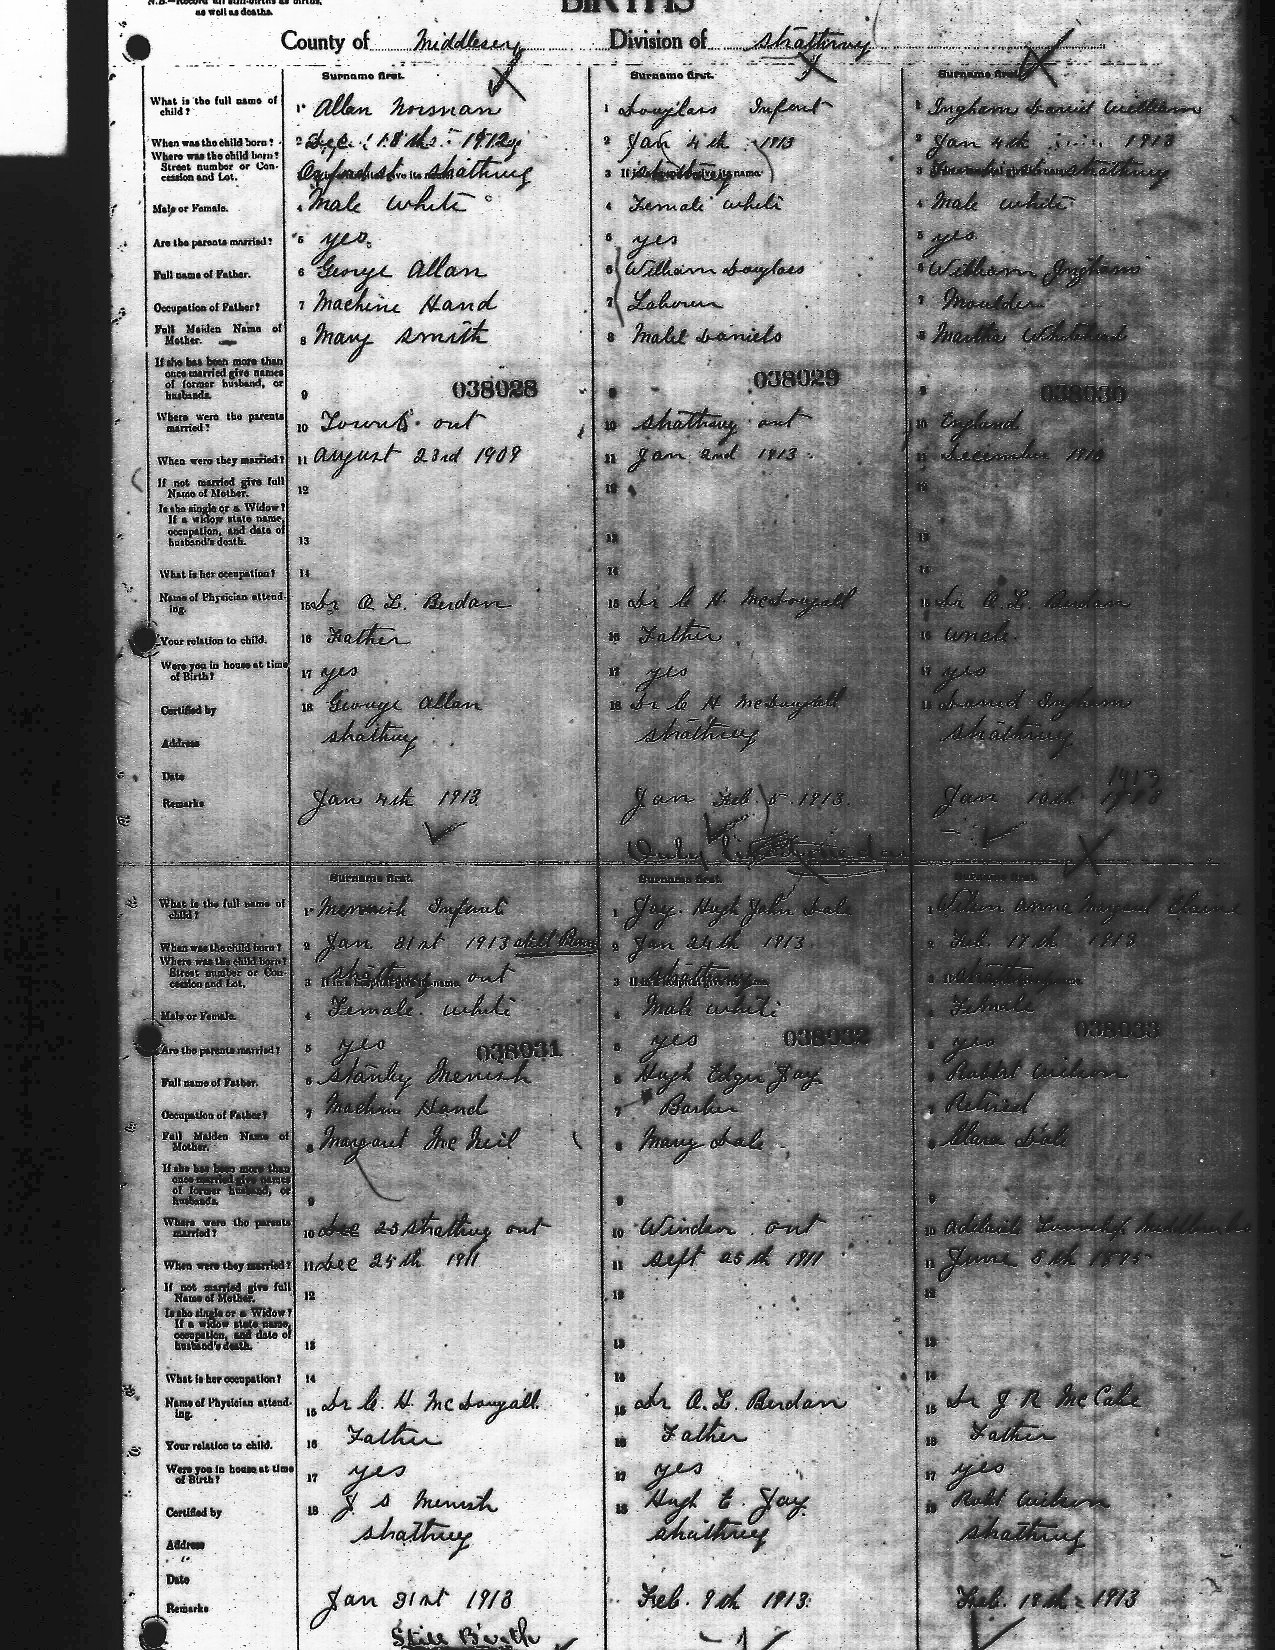 N.B.—Record all still-births as births,
as well as deaths.
BIRTHS
County of Middlesex Division of Strathroy
Surname first. Surname first. Surname first.
What is the full name of child? 1 Allan Norman 1 Douglass Infent 1 Ingham David William
When was the child born? 2 Dec. 18th 1912 2 Jan 4th 1913 2 Jan 4th 1913
Where was the child born? Street number or Concession and Lot. 3 Oxford st Strathroy 3 If in a hospital give its name Strathroy 3 Strathroy
Male or Female. 4 Male White 4 Female White 4 Male White
Are the parents married? 5 yes. 5 yes 5 yes.
Full name of Father. 6 George Allan 6 William Douglass 6 William Ingham
Occupation of Father? 7 Machine Hand 7 Laborer 7 Moulder
Full Maiden Name of Mother. 8 Mary Smith 8 Mabel Daniels 8 Martha Whitehead
If she has been more than once married give names of former husband, or husbands. 9 038028 9 038029 9 038030
Where were the parents married? 10 ont 10 Strathroy ont 10 England
When were they married? 11 August 23rd 1909 11 Jan 2nd 1913 11 December 1910
If not married give full Name of Mother. 12 12 12
Is she single or a Widow? If a widow state name, occupation, and date of husband's death. 13 13 13
What is her occupation? 14 14 14
Name of Physician attending. 15 Dr A. L. Berdan 15 Dr C H McDougall 15 Dr A. L. Berdan
Your relation to child. 16 Father 16 Father 16 Uncle
Were you in house at time of Birth? 17 yes 17 yes 17 yes
Certified by 18 George Allan 18 Dr C H McDougall 18 David Ingham
Address Strathroy Strathroy Strathroy
Date
1913
Remarks Jan 4th 1913 Jan Feb. 5 1913. Jan 10th
Only
Surname first. Surname first. Surname first.
What is the full name of child? 1 Menish Infent 1 Jay. Hugh John Dale 1 Wilson Anna Margaret Elaine
When was the child born? 2 Jan 31st 1913 Still Born 2 Jan 24th 1913. 2 Feb. 17th 1913
Where was the child born? Street number or Concession and Lot. 3 If in a hospital give its name Strathroy ont 3 If in a hospital give its name Strathroy 3 Strathroy
Male or Female. 4 Female. White 4 Male White 4 Female
Are the parents married? 5 yes 038031 5 yes 038032 5 yes 038033
Full name of Father. 6 Stanley Menish 6 Hugh Edgar Jay 6 Robert Wilson
Occupation of Father? 7 Machine Hand 7 Barber 7 Retired
Full Maiden Name of Mother. 8 Margaret McNeil 8 Mary Dale 8 Clara Dale
If she has been more than once married give names of former husband, or husbands. 9 9 9
Where were the parents married? 10 Dec 25 Strathroy ont 10 Windsor ont 10 Adelaide Township Middlesex
When were they married? 11 Dec 25th 1911 11 Sept 25th 1911 11 June 5th 1895
If not married give full Name of Mother. 12 12 12
Is she single or a Widow? If a widow state name, occupation, and date of husband's death. 13 13 13
What is her occupation? 14 14 14
Name of Physician attending. 15 Dr C. H. McDougall 15 Dr A. L. Berdan 15 Dr J R McCabe
Your relation to child. 16 Father 16 Father 16 Father
Were you in house at time of Birth? 17 yes 17 yes 17 yes
Certified by 18 J S Menish 18 Hugh E. Jay. 18 Robt Wilson
Address Strathroy Strathroy Strathroy
Date
Remarks Jan 31st 1913 Feb. 9th 1913. Feb. 18th 1913
Still Birth